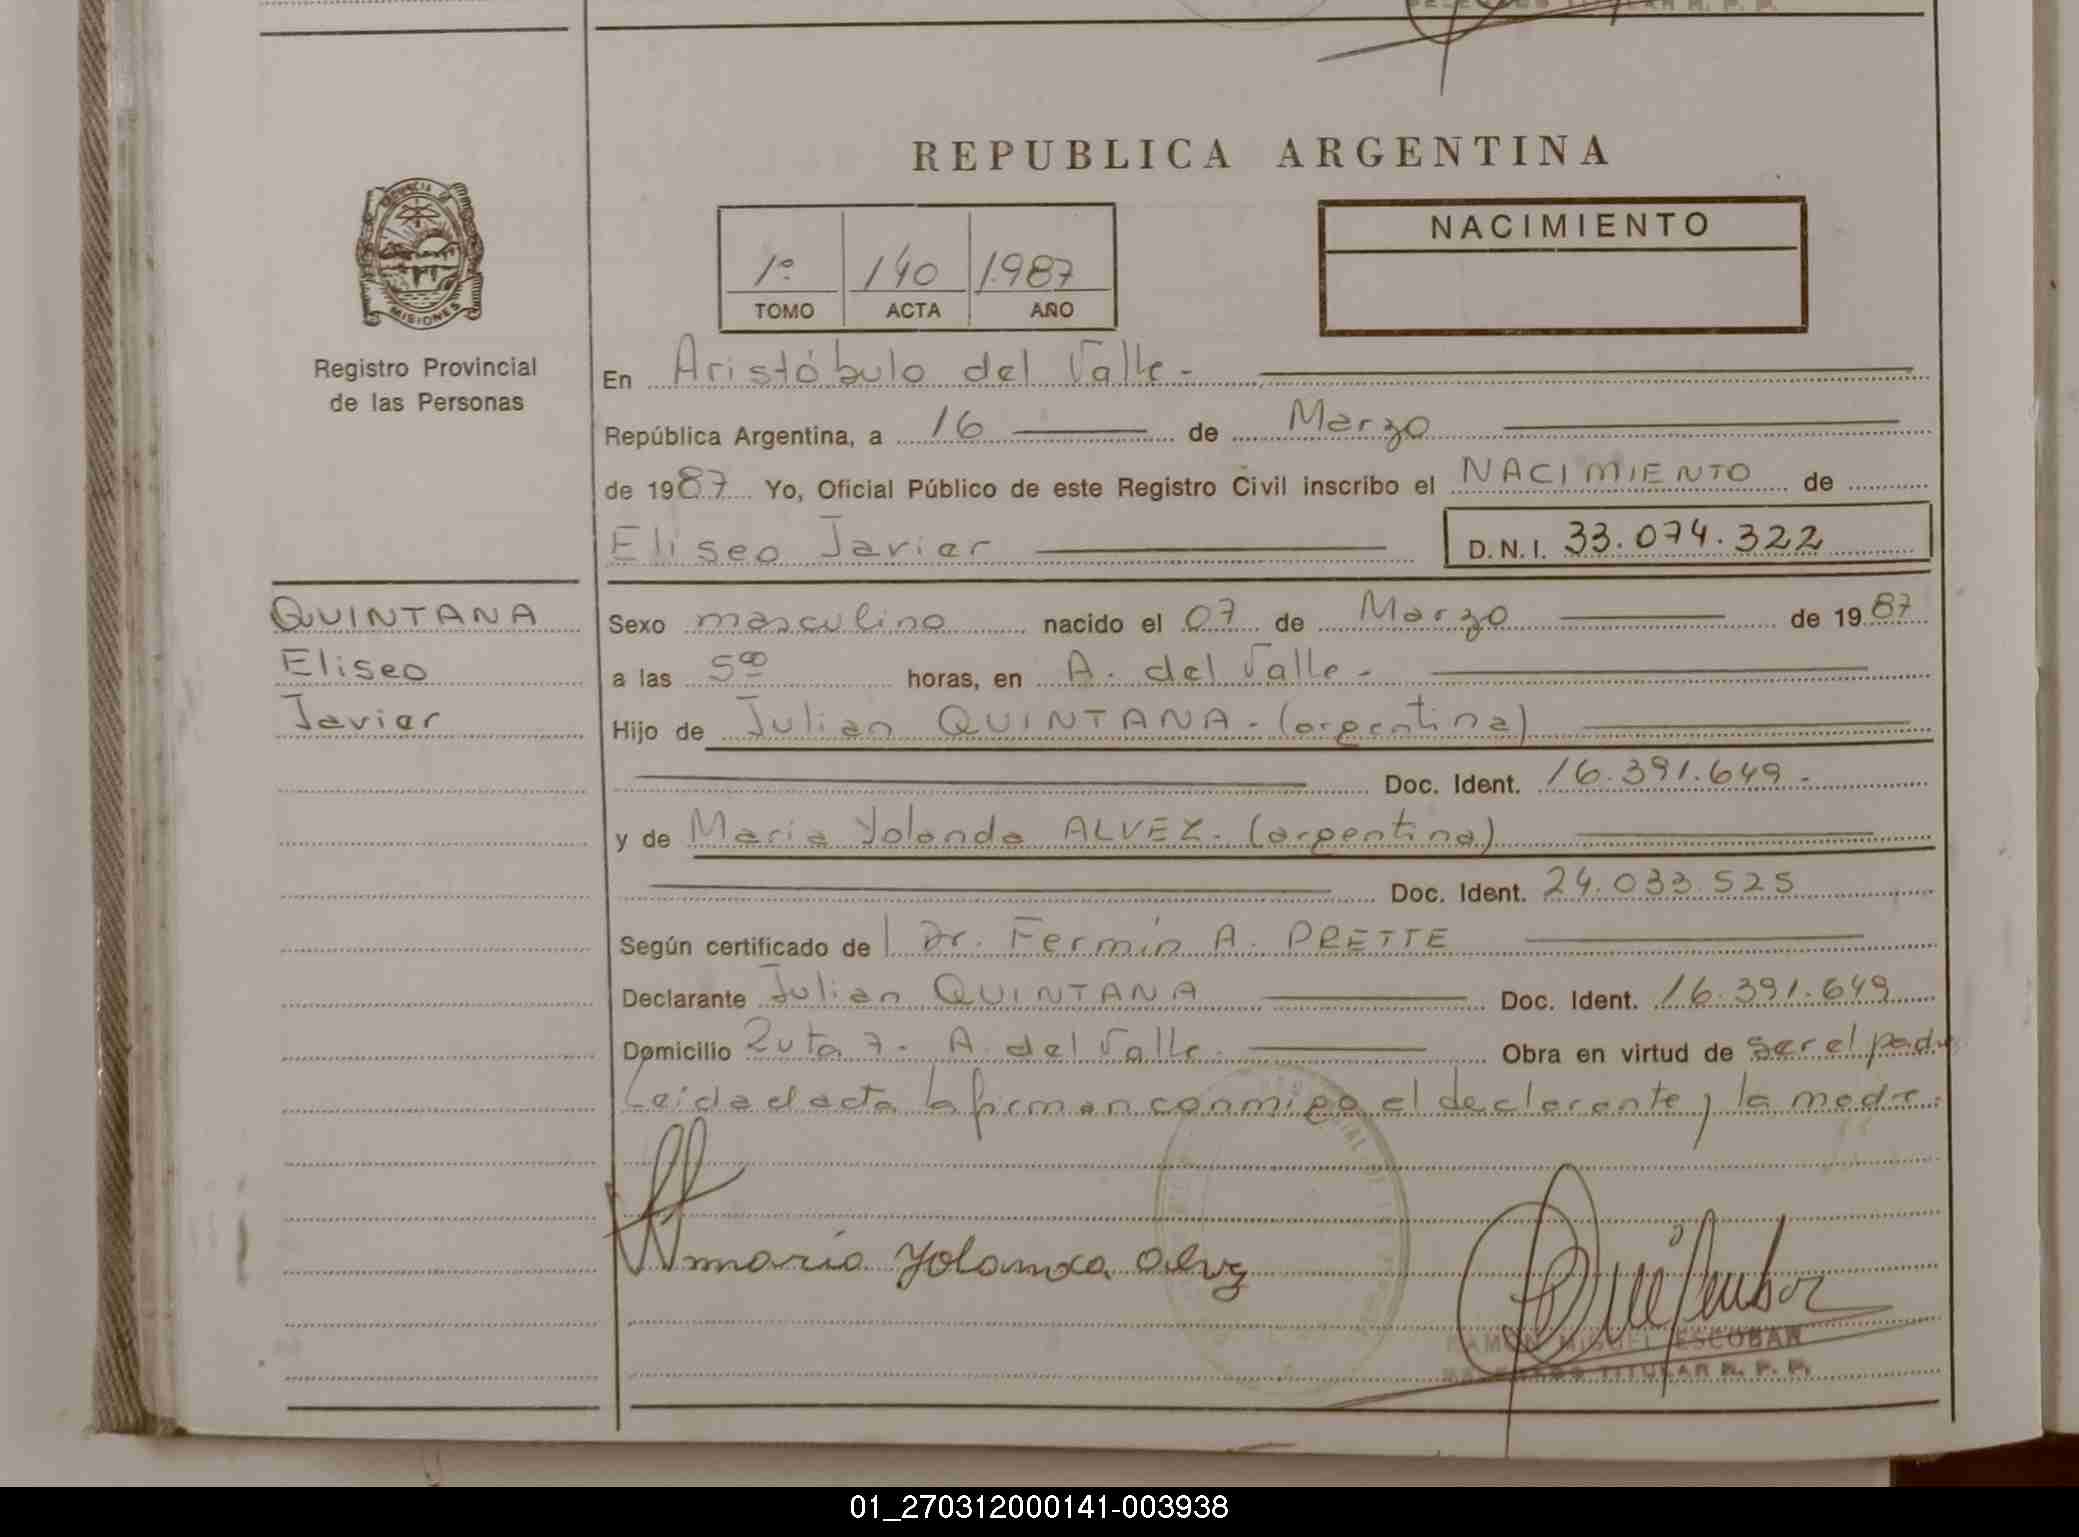 REPUBLICA ARGENTINA
PROVINCIA DE
MISIONES
Registro Provincial
de las Personas
1º 140 1987
TOMO ACTA AÑO
NACIMIENTO
En Aristóbulo del Valle.-
República Argentina, a 16 de Marzo
de 1987 Yo, Oficial Público de este Registro Civil inscribo el NACIMIENTO de
Eliseo Javier D.N.I. 33.074.322
QUINTANA
Eliseo
Javier
Sexo masculino nacido el 07 de Marzo de 1987
a las 5 00 horas, en A. del Valle.-
Hijo de Julian QUINTANA.- (argentina)
Doc. Ident. 16.391.649.-
y de María Yolanda ALVEZ.- (argentina)
Doc. Ident. 24.033.525
Según certificado de Dr. Fermín A. PRETTE
Declarante Julian QUINTANA Doc. Ident. 16.391.649
Domicilio Ruta 7.- A. del Valle.- Obra en virtud de ser el padre
Leida el acta la firman conmigo el declarante y la madre.-
maria Yolanda
RAMON MIGUEL ESCOBAR
DELEGADO TITULAR R. P. P.
01_270312000141-003938